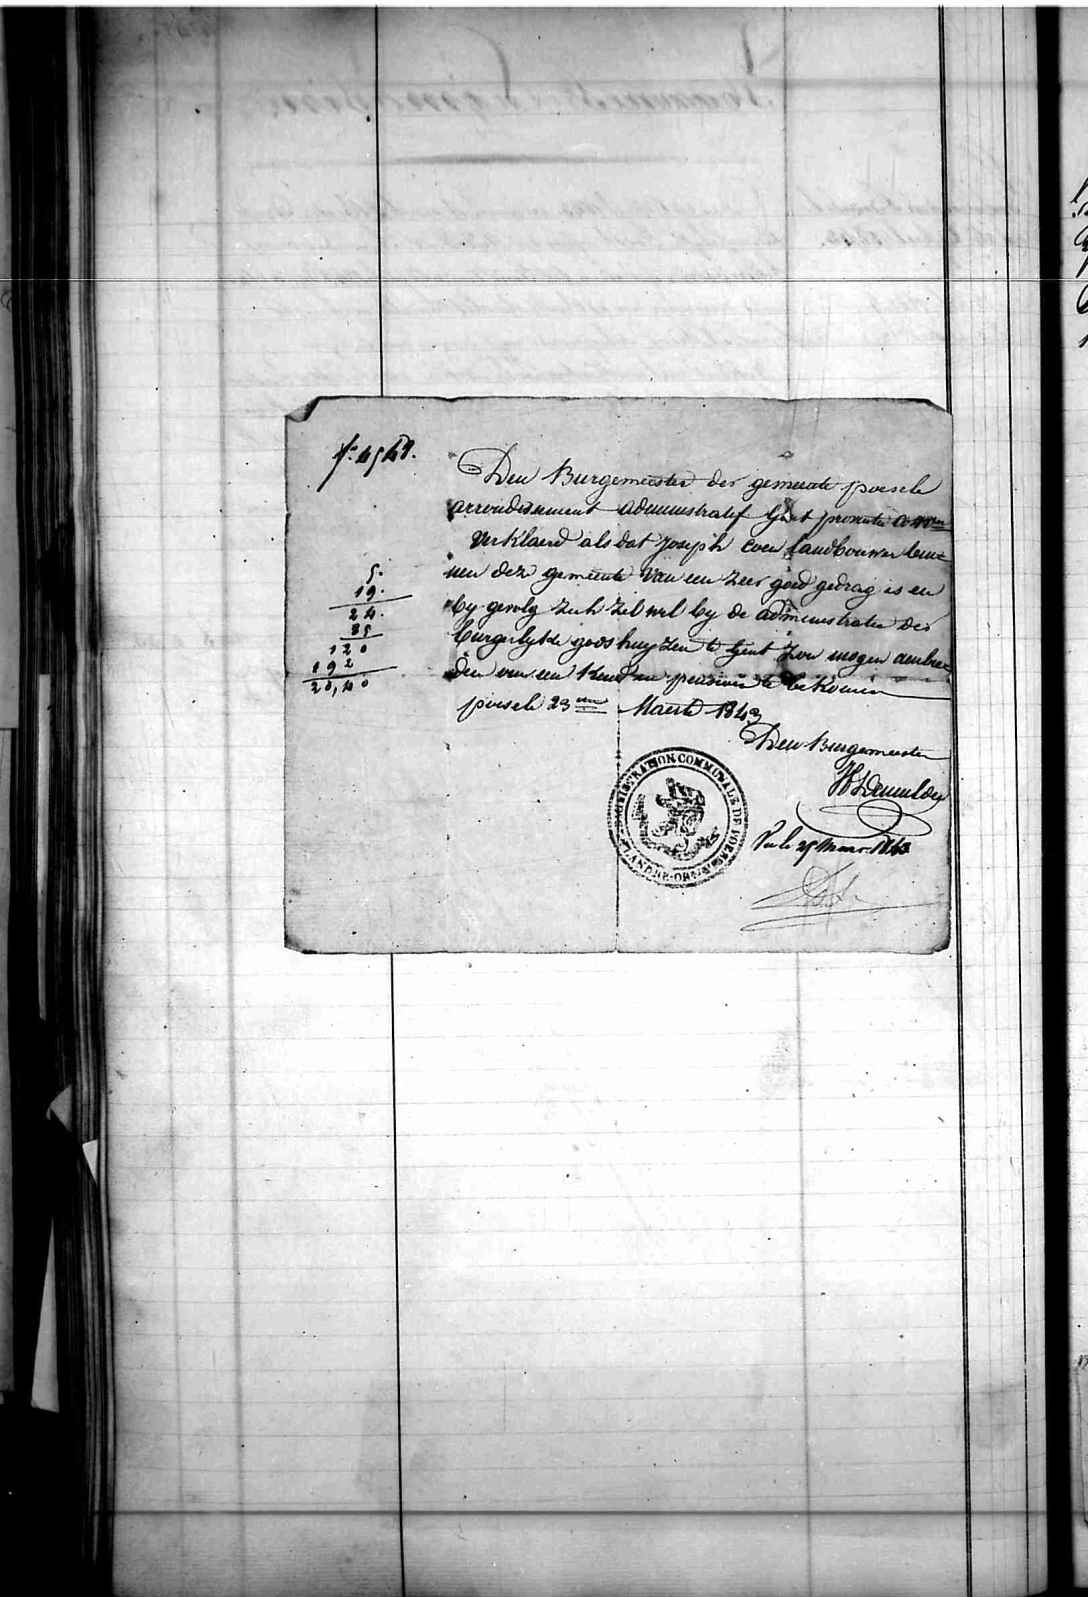 Den Burgemeester der gemeente poesele
arrondissement administratif Gent provintie
verklaerd als dat Joseph Coen landbouwer bin=
nen deze gemeente van een zeer goed gedrag is en
by gevolg zich zel wel by de administratie der
burgerlyke godshuyzen te Gent zou mogen aenbie=
den om een kend en pensioen te bekomen
poesele 23 Maerte 1843
Den Burgemeester
5.
19.
24.
85
120
192
20,40
ADMINISTRATION COMMUNALE DE POESELE
FLANDRE-ORIENT
Vu le 25 Mars 1843